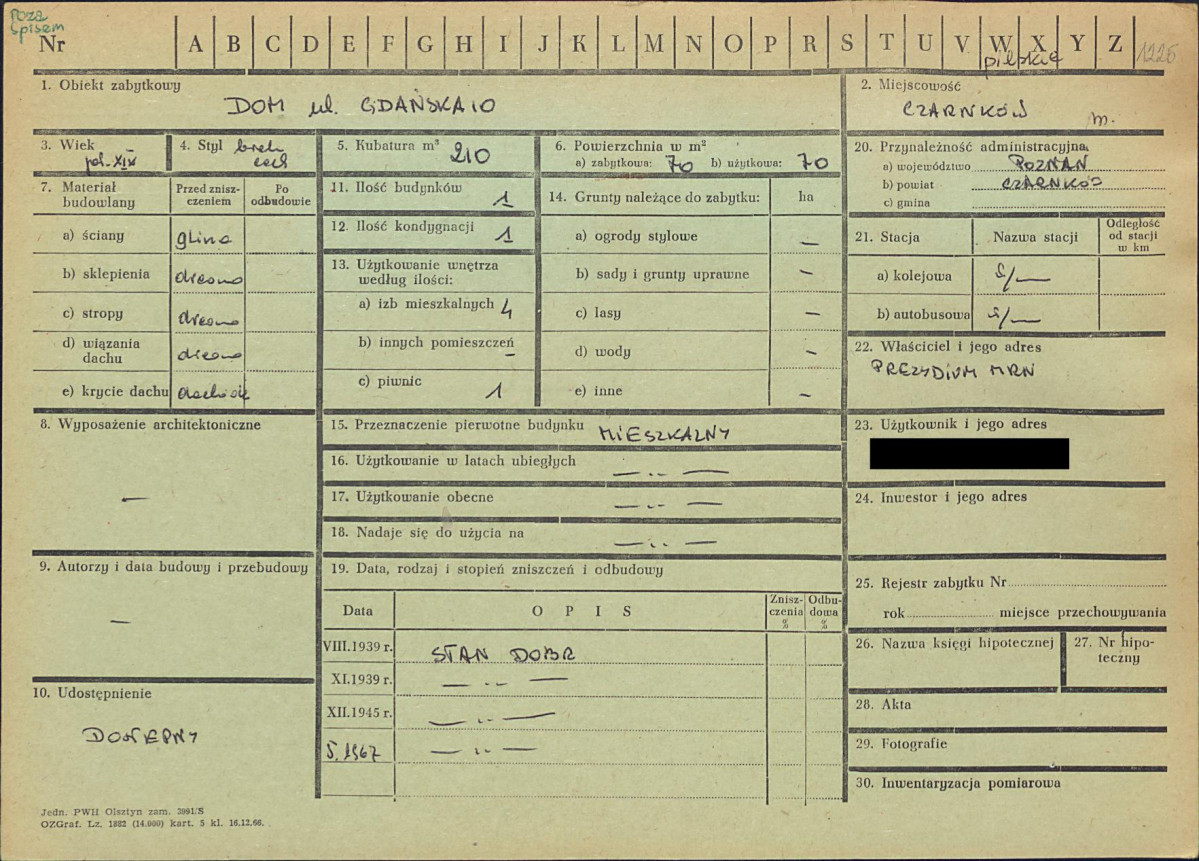 Poza
spisem
Nr A B C D E F G H I J K L M N O P R S T U V W X Y Z 1225
pilskie
1. Obiekt zabytkowy
DOM ul. GDAŃSKA 10
2. Miejscowość
CZARNKÓW m.
3. Wiek
poł. XIX
4. Styl brak
cech
5. Kubatura m³ 210
6. Powierzchnia w m²
a) zabytkowa: 70 b) użytkowa: 70
20. Przynależność administracyjna
a) województwo POZNAŃ
b) powiat CZARNKÓW
c) gmina
7. Materiał budowlany
Przed zniszczeniem
Po odbudowie
a) ściany glina
b) sklepienia drewno
c) stropy drewno
d) wiązania dachu drewno
e) krycie dachu dachówka
11. Ilość budynków 1
12. Ilość kondygnacji 1
13. Użytkowanie wnętrza
według ilości:
a) izb mieszkalnych 4
b) innych pomieszczeń –
c) piwnic 1
14. Grunty należące do zabytku: ha
a) ogrody stylowe –
b) sady i grunty uprawne –
c) lasy –
d) wody –
e) inne –
21. Stacja Nazwa stacji
Odległość
od stacji
w km
a) kolejowa
b) autobusowa
22. Właściciel i jego adres
PREZYDIUM MRN
8. Wyposażenie architektoniczne
—
15. Przeznaczenie pierwotne budynku MIESZKALNY
16. Użytkowanie w latach ubiegłych — „ —
17. Użytkowanie obecne — „ —
18. Nadaje się do użycia na — „ —
23. Użytkownik i jego adres
24. Inwestor i jego adres
9. Autorzy i data budowy i przebudowy
—
19. Data, rodzaj i stopień zniszczeń i odbudowy
Data O P I S
Znisz-
czenia
%
Odbu-
dowa
%
VIII.1939 r. STAN DOBR
XI.1939 r. — „ —
XII.1945 r. — „ —
5. 1967 — „ —
25. Rejestr zabytku Nr
rok miejsce przechowywania
26. Nazwa księgi hipotecznej
27. Nr hipo-
teczny
28. Akta
29. Fotografie
30. Inwentaryzacja pomiarowa
10. Udostępnienie
DOSTĘPNY
Jedn. PWH Olsztyn zam. 3991/S
OZGraf. Lz. 1882 (14.000) kart. 5 kl. 16.12.66.